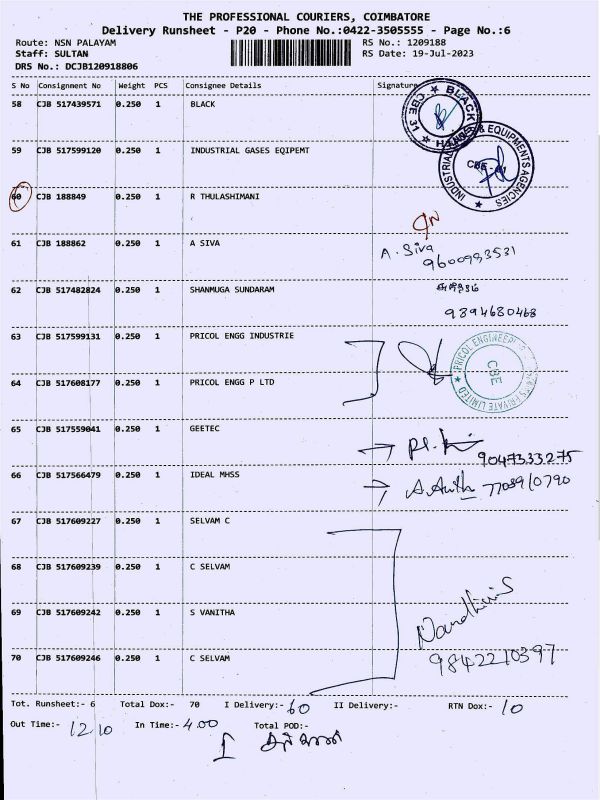 THE PROFESSIONAL COURIERS, COIMBATORE
Delivery Runsheet - P20 - Phone No.:0422-3505555 - Page No.:6
Route: NSN PALAYAM RS No.: 1209188
Staff: SULTAN RS Date: 19-Jul-2023
DRS No.: DCJB120918806
S No Consignment No Weight PCS Consignee Details Signature
58 CJB 517439571 0.250 1 BLACK
59 CJB 517599120 0.250 1 INDUSTRIAL GASES EQIPEMT
60 CJB 188849 0.250 1 R THULASHIMANI
61 CJB 188862 0.250 1 A SIVA A. Siva
9600993531
62 CJB 517482824 0.250 1 SHANMUGA SUNDARAM
9894680468
63 CJB 517599131 0.250 1 PRICOL ENGG INDUSTRIE
64 CJB 517608177 0.250 1 PRICOL ENGG P LTD
CBE
65 CJB 517559041 0.250 1 GEETEC
9047333275
66 CJB 517566479 0.250 1 IDEAL MHSS
67 CJB 517609227 0.250 1 SELVAM C
68 CJB 517609239 0.250 1 C SELVAM
69 CJB 517609242 0.250 1 S VANITHA
70 CJB 517609246 0.250 1 C SELVAM 9842210397
Tot. Runsheet:- 6 Total Dox:- 70 I Delivery:- 60 II Delivery:- RTN Dox:- 10
Out Time:- 12.10 In Time:- 4.00 Total POD:-